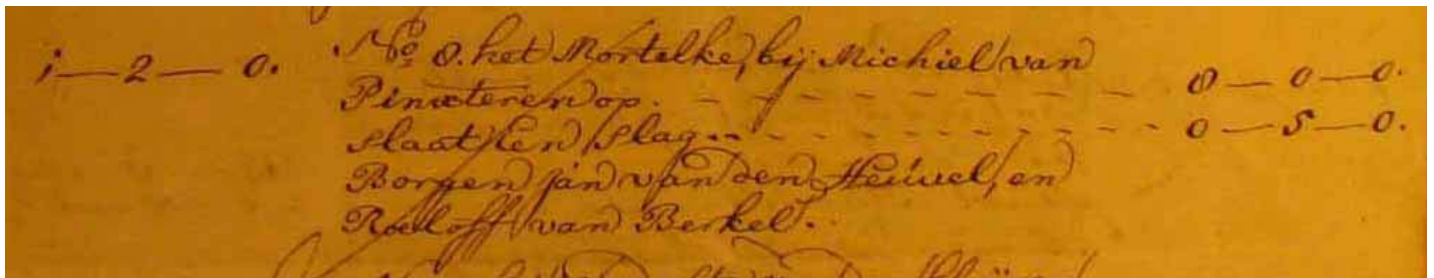 i — 2 — 0. No. 8. het Mortelke, bij Michiel van
Pinxteren op. - - - - - - - - - - 8 — 0 — 0.
slaat sen slag.. - - - - - - - - - 0 — 5 — 0.
Borgen jan van den Heúvel, en
Roeloff van Berkel.